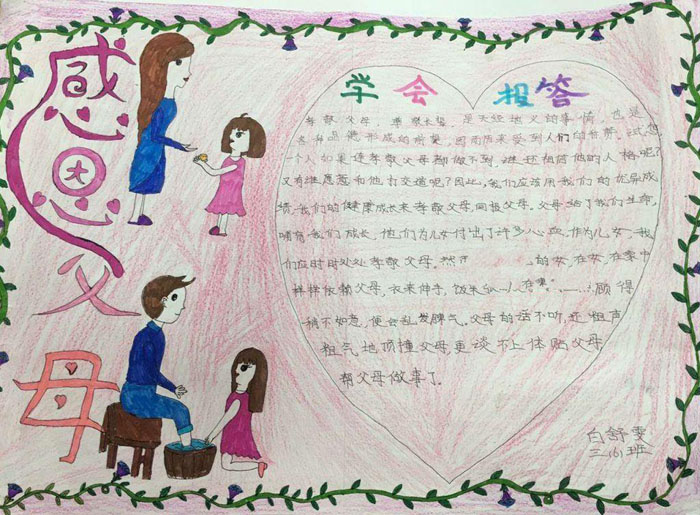 感恩父母
学会报答
孝敬父母，孝敬长辈，是天经地义的事情，也是
各种品德形成的前提，因而历来受到人们的
一个人如果连孝敬父母都做不到，谁还相信他的人格呢？
又有谁愿意和他打交道呢？因此，我们应该用我们的优异成
绩，我们的健康成长来孝敬父母，回报父母。父母给了我们生命，
哺育我们成长，他们为儿女付出了许多心血，作为儿女，我
们应时时处处孝敬父母。然 的女，在女，在家中
样样依赖父母，衣来伸手，饭来 顾得
稍不如意，便会乱发脾气。父母的话不听，还粗声
粗气地顶撞父母，更谈不上体贴父母，
帮父母做事了。
白舒雯
三(6)班